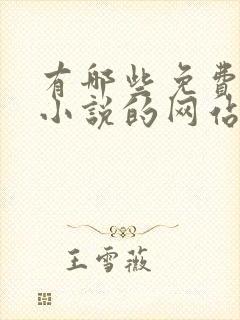 有哪些免费
小说的网站
王雪薇